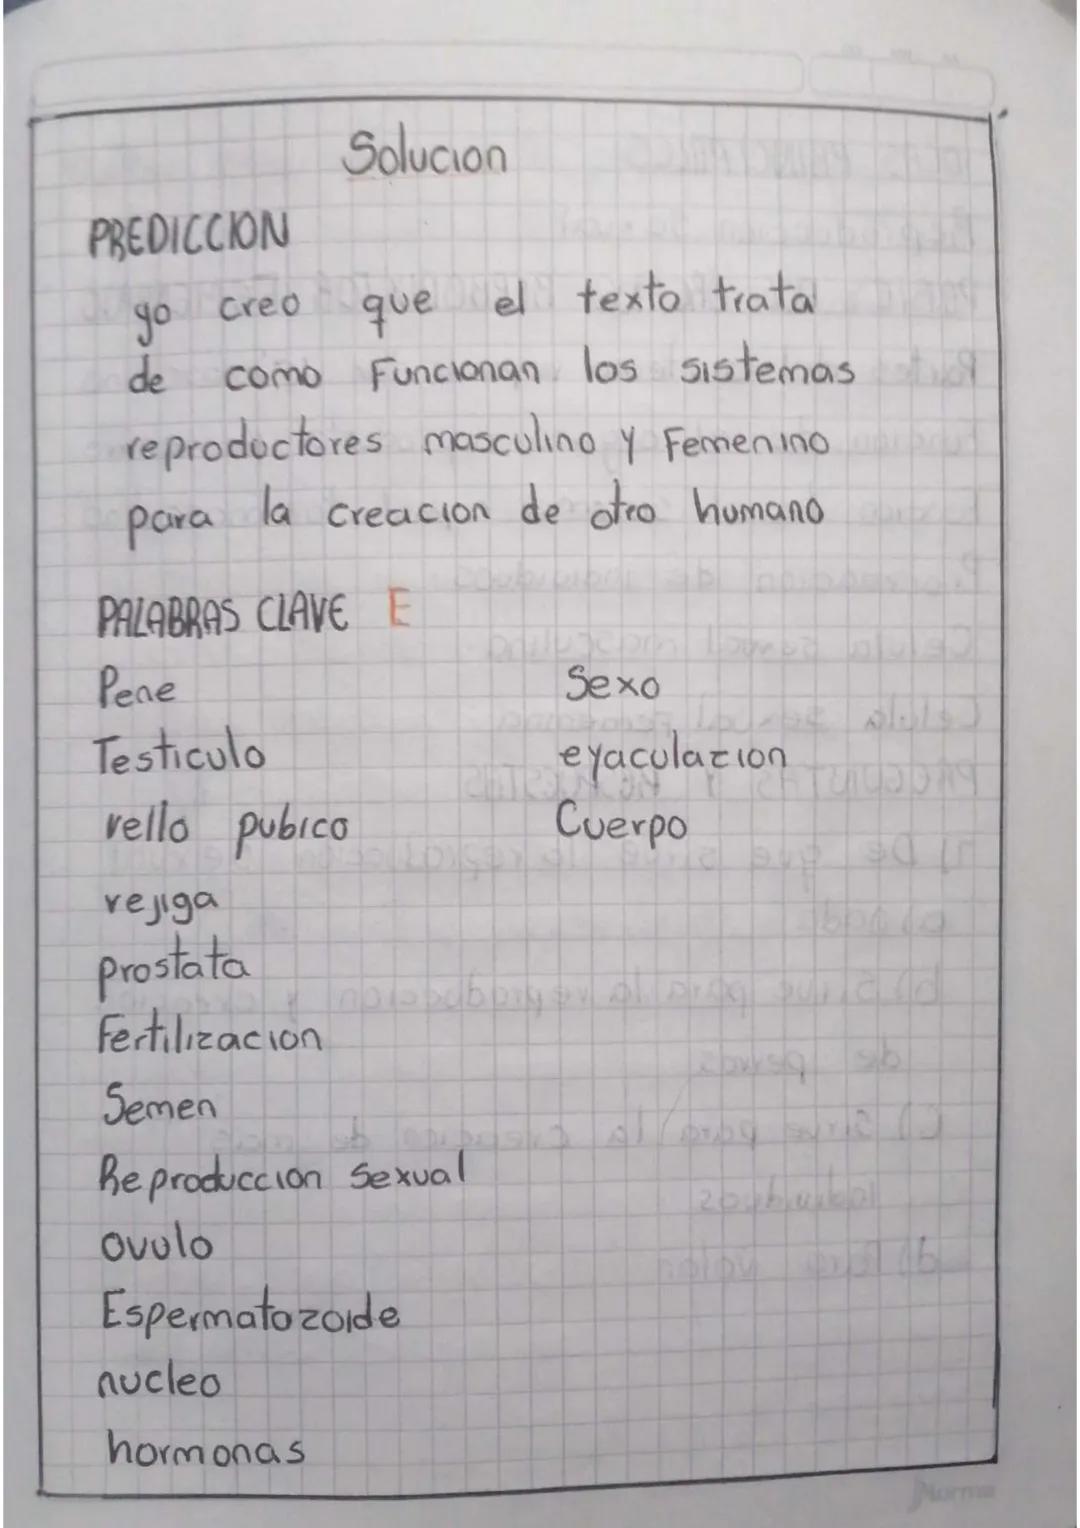 Solucion
PREDICCION
yo creo que el texto trata
de como Funcionan los sistemas
reproductores masculino y Femenino
para la creacion de otro humano
PALABRAS CLAVE E
Pene
Testiculo
vello pubico
vejiga
prostata
Fertilizacion
Semen
Reproduccion Sexual
ovulo
Espermatozoide
nucleo
hormonas
Sexo
eyaculazion
Cuerpo
Norma